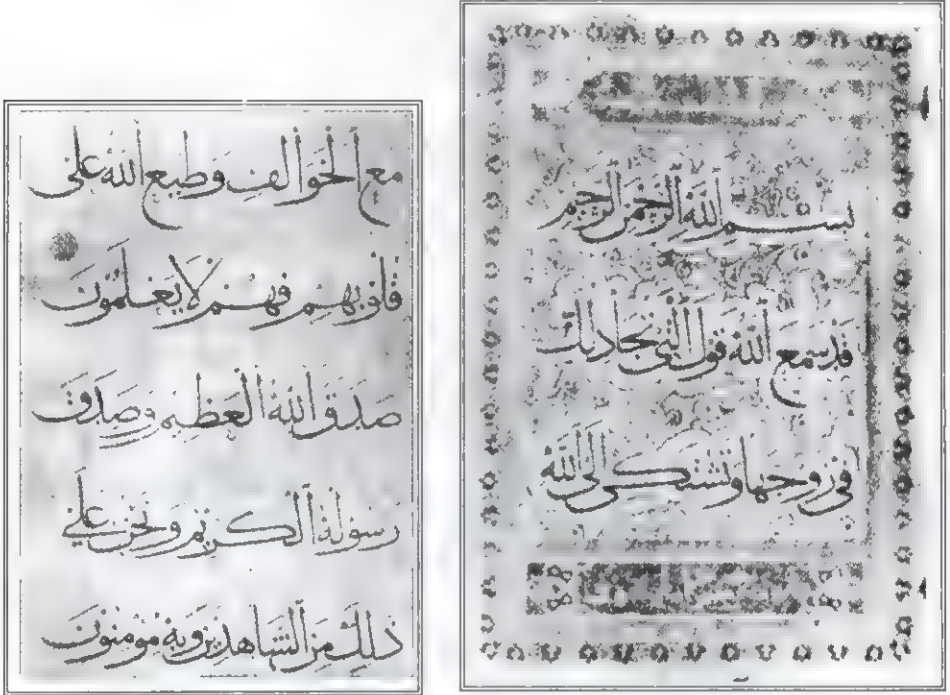 بسم الله الرحمن الرحيم
قد سمع الله قول التي تجادلك
في زوجها وتشتكي إلى الله
مع الخوالف وطبع الله على
قلوبهم فهم لا يعلمون
صدق الله العظيم وصدق
رسوله الكريم ونحن على
ذلك من الشاهدين وبه مومنون